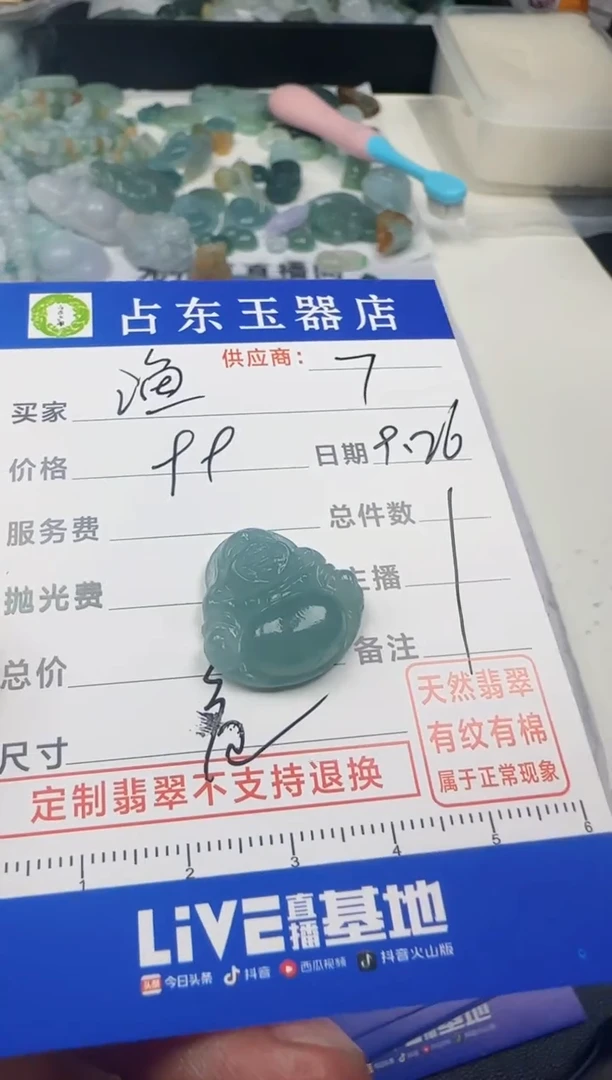 占东玉器店
供应商： 7
买家 渔
价格 99 日期 9.26
服务费 总件数 1
抛光费 主播
总价 备注
尺寸
天然翡翠
有纹有棉
属于正常现象
定制翡翠不支持退换
1 2 3 4 5 6
LiVE直播基地
头条 今日头条 抖音 西瓜视频 抖音火山版